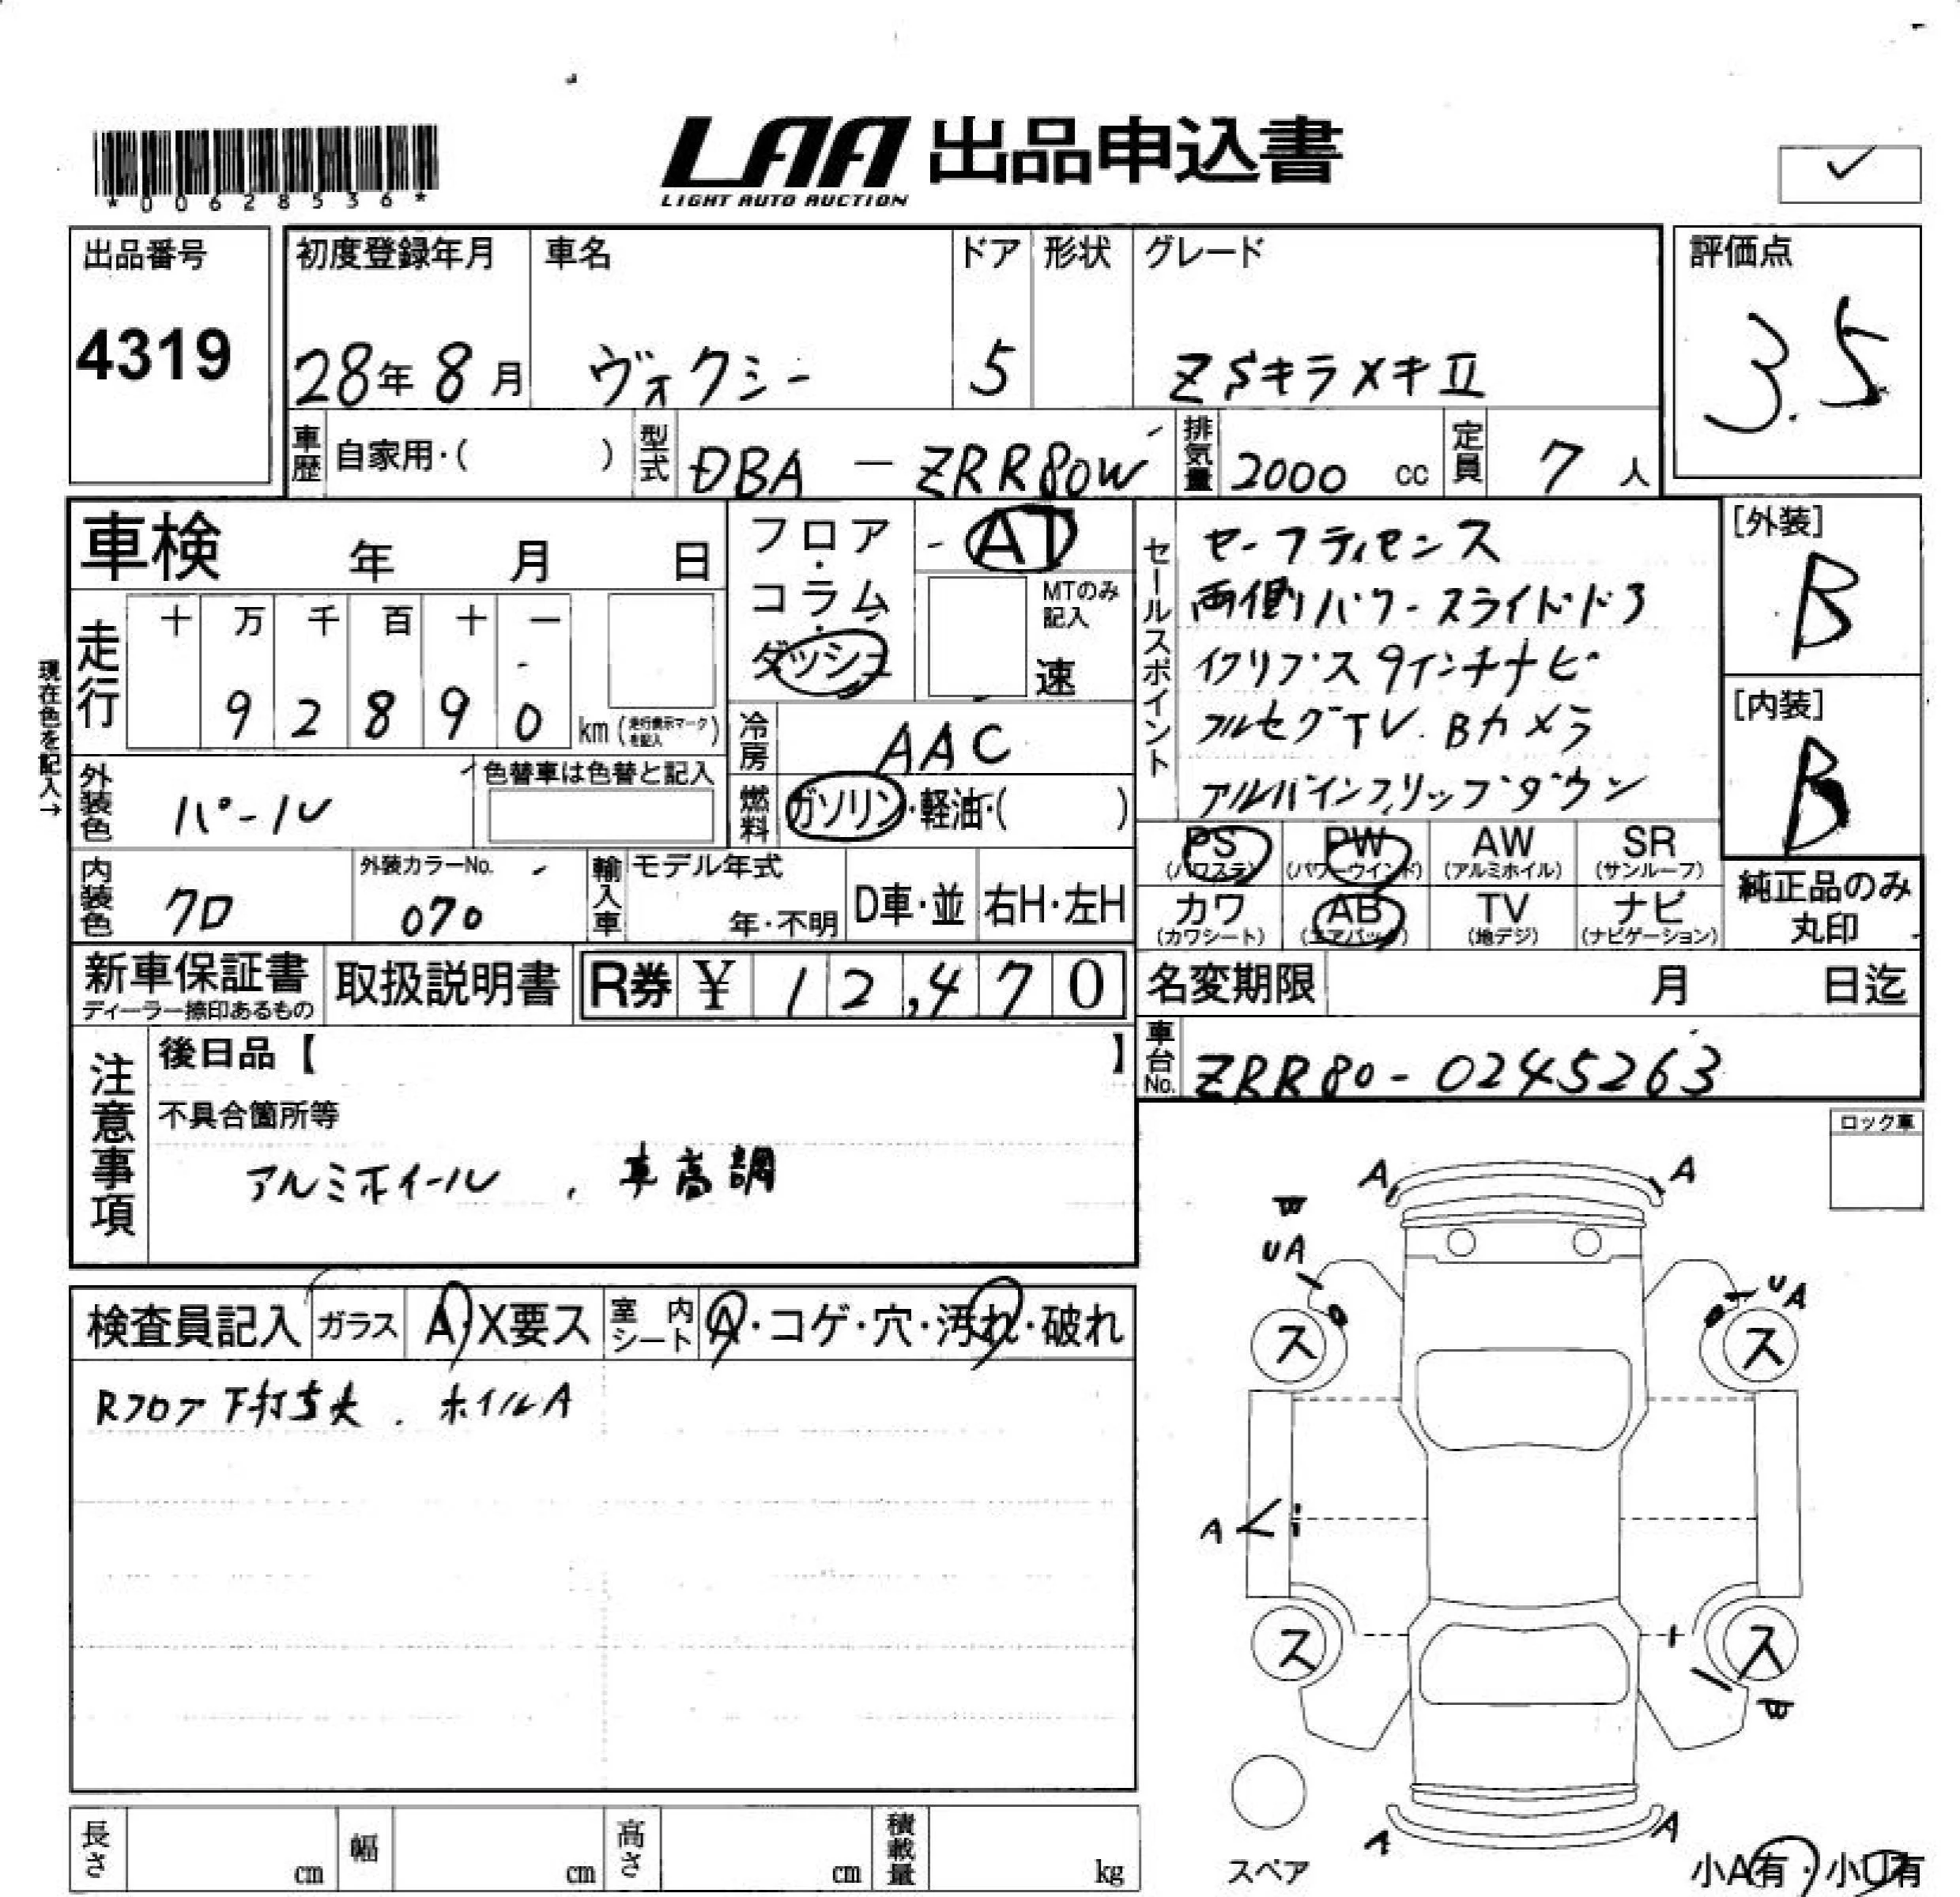 *00628536*
LAA 出品申込書
LIGHT AUTO AUCTION
✓
出品番号
4319
初度登録年月 車名 ドア 形状 グレード
28年8月 ヴォクシー 5 ZSキラメキⅡ
評価点
3.5
車歴 自家用・( ) 型式 DBA - ZRR80W 排気量 2000 cc 定員 7 人
車検 年 月 日
フロア・コラム・ダッシュ
AT
MTのみ記入
速
走行
十 万 千 百 十 一
9 2 8 9 0 km (走行表示マークを記入)
現在色を記入→
冷房 AAC
外装色 パール
色替車は色替と記入
燃料 ガソリン・軽油・( )
内装色 クロ
外装カラーNo.
070
輸入車 モデル年式
年・不明 D車・並 右H・左H
セールスポイント
セーフティセンス
両側パワースライドドア
イクリプス9インチナビ
フルセグTV. Bカメラ
アルパインフリップダウン
[外装]
B
[内装]
B
PS PW AW SR
(パワステ) (パワーウインド) (アルミホイル) (サンルーフ)
カワ AB TV ナビ
(カワシート) (エアバック) (地デジ) (ナビゲーション)
純正品のみ
丸印
新車保証書
ディーラー捺印あるもの
取扱説明書
R券 ¥ 12,470
名変期限 月 日迄
車台No. ZRR80-0245263
注意事項
後日品【 】
不具合箇所等
アルミホイール 、車高調
ロック車
検査員記入 ガラス A・X要ス 室内シート A・コゲ・穴・汚れ・破れ
Rフロア下打ち大 . ホイルA
A A
W
UA
UA
ス ス
A
ス ス
W
A A
スペア
小A有・小U有
長さ cm 幅 cm 高さ cm 積載量 kg